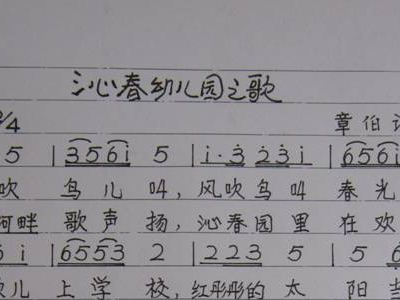 沁春幼儿园之歌
2/4 章伯
5 | 3 5 6 i 5 | i · 3 2 3 i | 6 5 6 i
吹 鸟儿叫,风吹鸟叫 春光
河畔 歌声 扬,沁春园里 在欢
6 i | 6 5 5 3 2 | 2 2 3 5 | 5 6
儿 上学 校,红彤彤的 太 阳